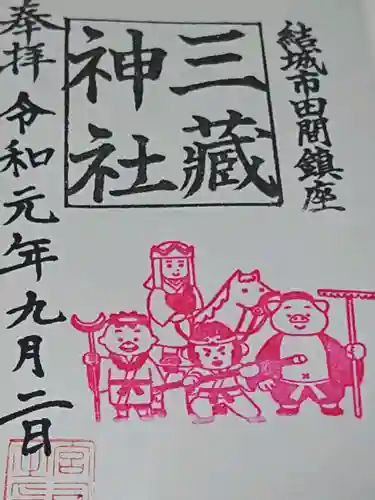 結城市田間鎮座
三藏
神社
奉拝 令和元年九月二日